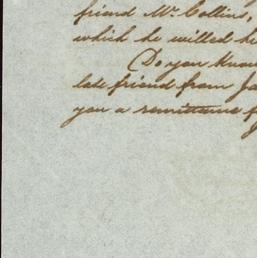 friend Mr. Collins,
which he willed
Do you know
late friend from
you a remittance